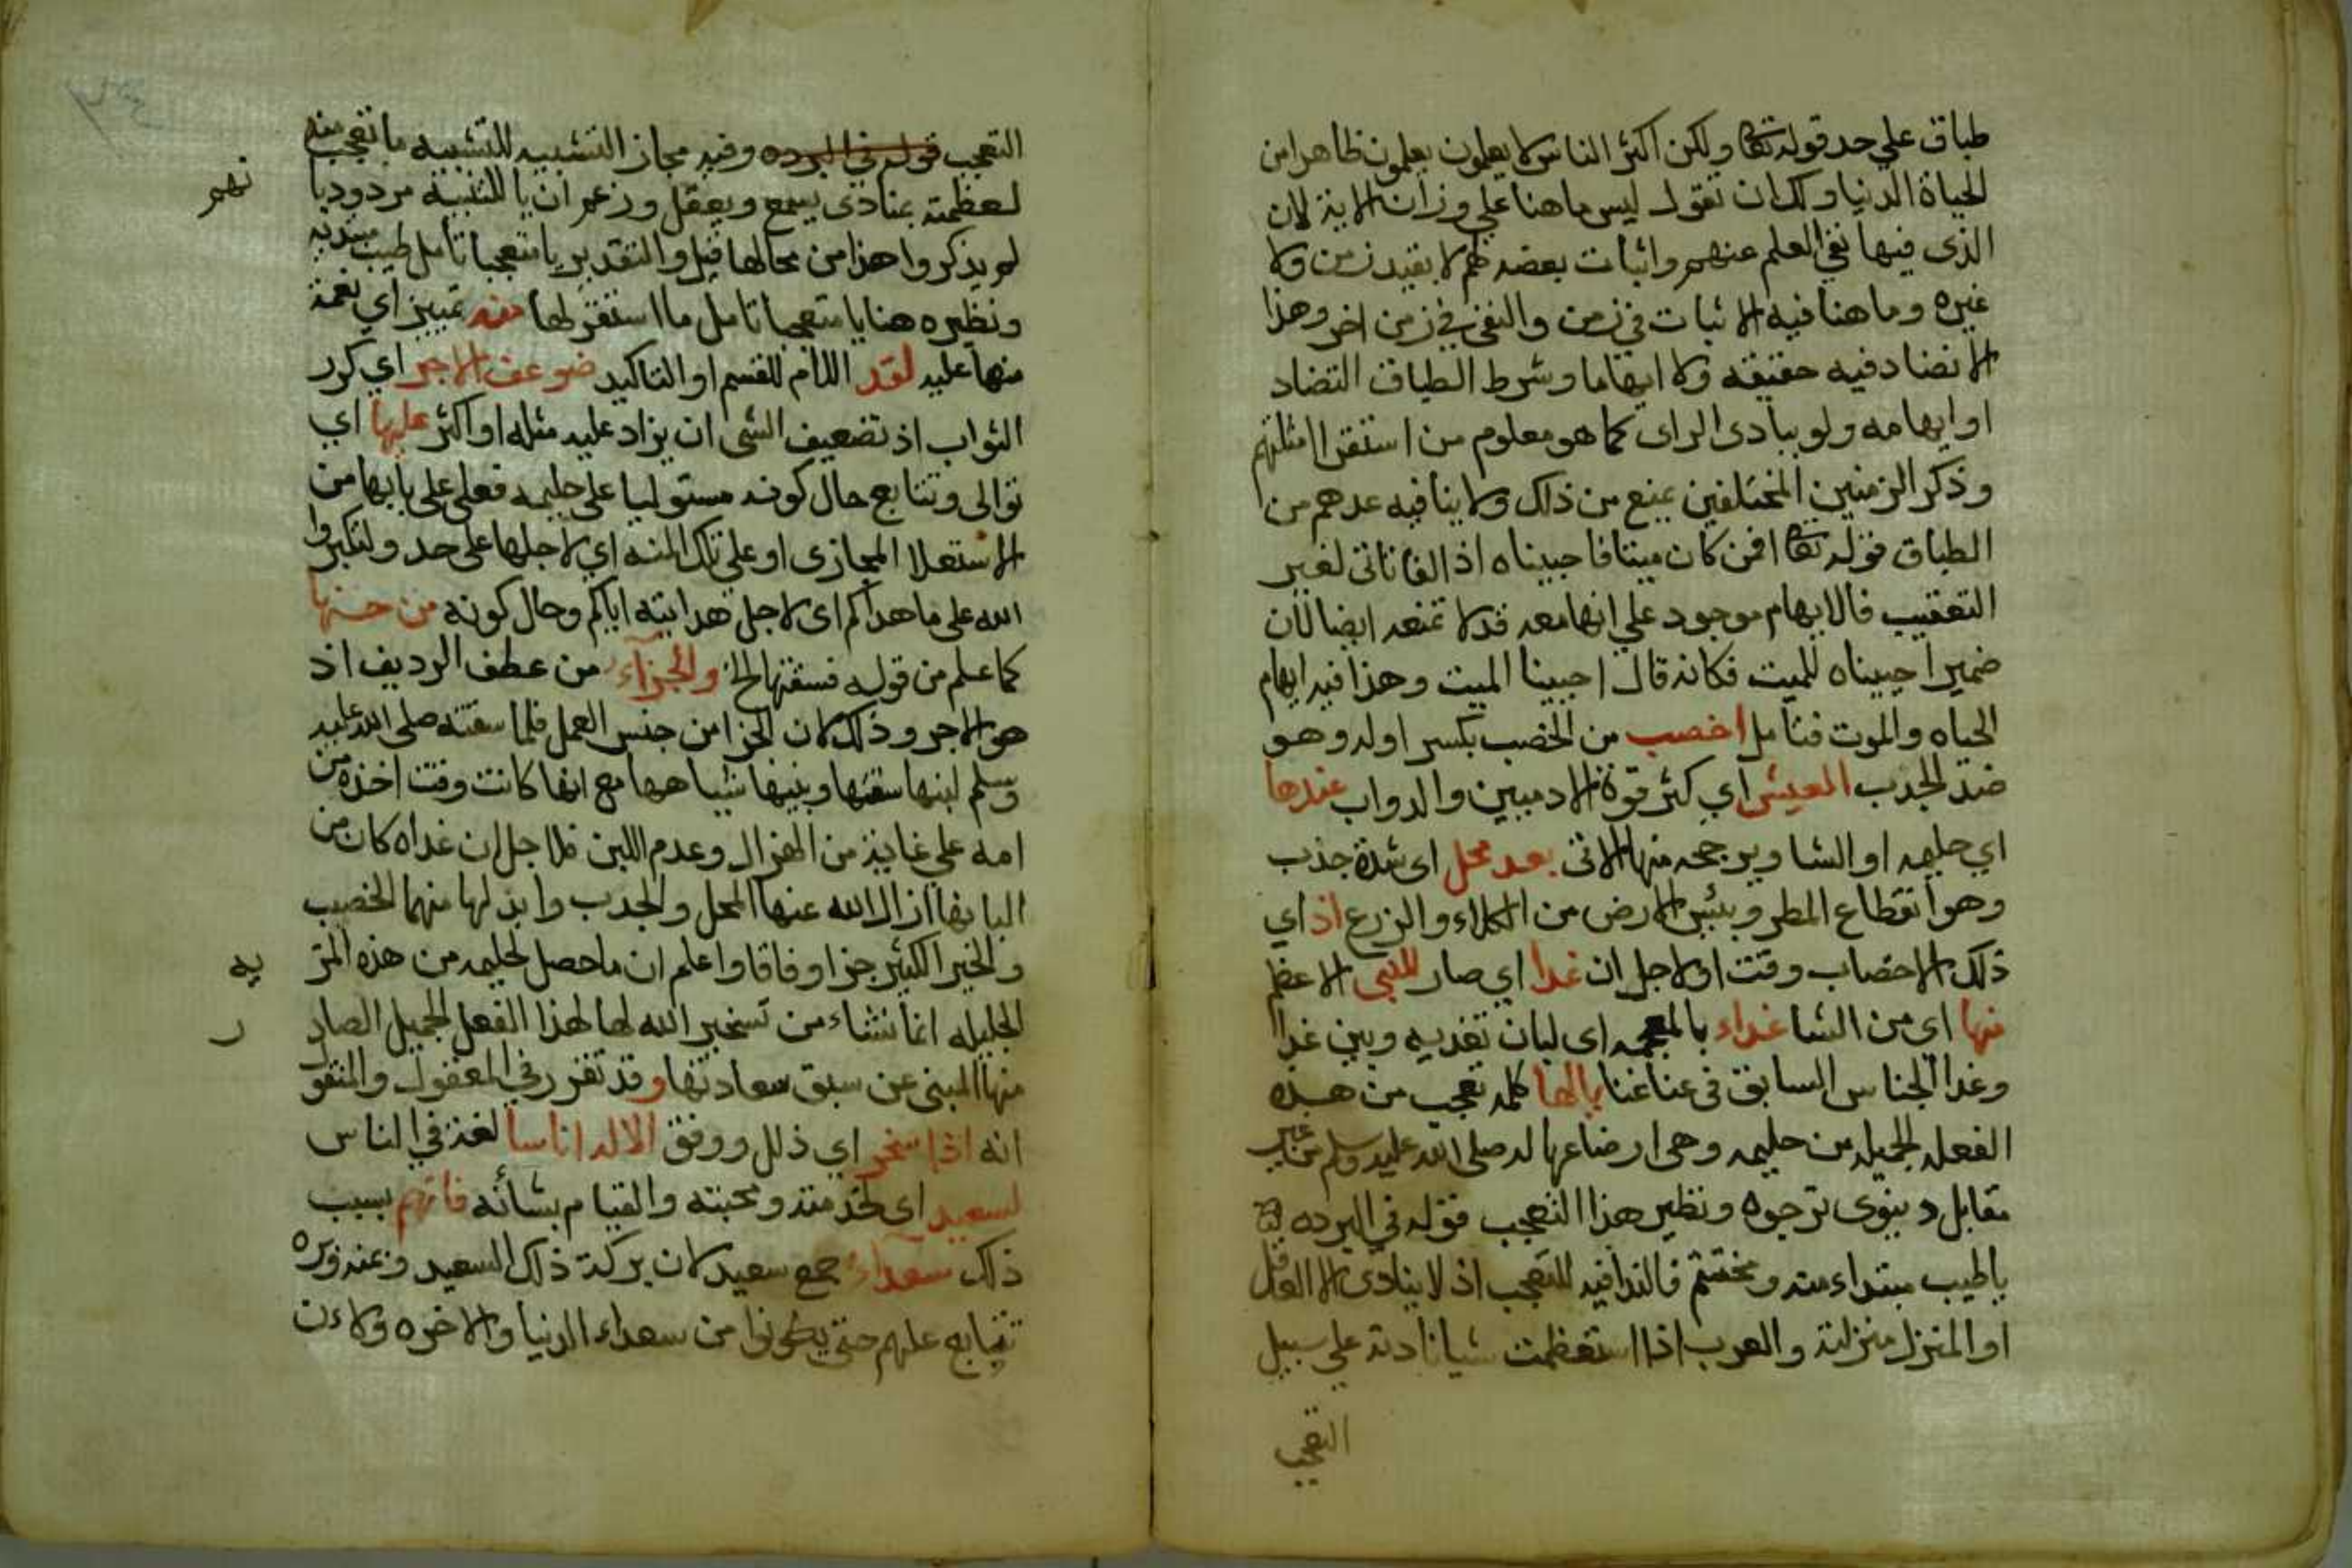 طباق علي حد قوله تعا ولكن اكثر الناس لا يعلمون يعلمون ظاهرا من
الحياة الدنيا ولك ان تقول ليس ما هنا علي وزان الاية لان
الذى فيها نفي العلم عنهم واثبات بعضه لهم لا بقيد زمن ولا
غيره وما هنا فيه الاثبات في زمن والنفي في زمن اخر وهذا
لا تضاد فيه حقيقه ولا ايهاما وشرط الطباق التضاد
او ايهامه ولو ببادى الراى كما هو معلوم من استقرا امثلتهم
وذكر الزمنين المختلفين يمنع من ذلك ولا ينافيه عدهم من
الطباق قوله تعا افمن كان ميتا فاحييناه اذ الفا تاتى لغير
التعقيب فالايهام موجود علي انها معه قد لا تمنعه ايضا لان
ضمير احييناه للميت فكانه قال احيينا الميت وهذا فيه ايهام
الحياه والموت فتامل اخصب من الخصب بكسر اوله وهو
ضد الجدب العيش اي كثر قوة الادميين والدواب عندها
اي حليمه او الشا ويرجحه منها الاتى بعد محل اى شدة جذب
وهو انقطاع المطر ويبس الارض من الكلاء والزرع اذ اي
ذلك الاخصاب وقت او لاجل ان غدا اي صار للنبى الاعظم
منها اى من الشا غداء بالمعجمه اى لبان تغديه وبين غدا
وغدا الجناس السابق في عنا غنا يالها كلمه تعجب من هذه
الفعله الجميله من حليمه وهى ارضاعها له صلى الله عليه وسلم من غير
مقابل دنيوى ترجوه ونظير هذا التعجب قوله في البرده
ياطيب مبتداء منه ومختتم فالندا فيه للتعجب اذ لا ينادى الا العاقل
او المنزل منزلته والعرب اذا استعظمت شيا نادته علي سبيل
التعجب
التعجب قوله في البرده وفيه مجاز التشبيه للتشبيه ما تعجب منه
لعظمته بمنادى يسمع ويعقل وزعم ان يا للتنبيه مردود با
نهم
لم يذكروا هذا من محالها قيل والتقدير يا متعجبا تامل طيب مبتديه
ونظيره هنا يا متعجبا تامل ما استقر لها منه تمييز اي نعمة
منها عليه لقد اللام للقسم او التاكيد ضوعف الاجر اي كرر
الثواب اذ تضعيف الشى ان يزاد عليه مثله او اكثر عليها اي
توالى وتتابع حال كونه مستوليا على حليمه فعلى على بابها من
الاستعلا المجازى او على تلك المنه اي لاجلها على حد ولتكبروا
الله على ما هداكم اى لاجل هدايته اياكم وحال كونه من جنسها
كما علم من قوله فسقتها الخ والجزآء من عطف الرديف اذ
هو الاجر وذلك لان الجزا من جنس العمل فلما سقته صلى الله عليه
وسلم لبنها سقتها وبنيها شياهها مع انها كانت وقت اخذه من
امه علي غاية من الهزال وعدم اللبن فلاجل ان غداه كان من
البانها ازال الله عنها المحل والجدب وابدلها منهما الخصب
والخير الكثير جزا وفاقا واعلم ان ما حصل لحليمه من هذه المز
يه
الجليله انما نشاء من تسخير الله لها لهذا الفعل الجميل الصاد
ر
منها المبنى عن سبق سعادتها وقد تقرر في المعقول والمنقول
انه اذا سخر اي ذلل ووفق الاله اناسا لغة في الناس
لسعيد اى لخدمته ومحبته والقيام بشأنه فانهم بسبب
ذلك سعدآء جمع سعيد لان بركة ذلك السعيد وعنه وره
تتبابع عليهم حتى يكونوا من سعداء الدنيا والاخره ولاءن